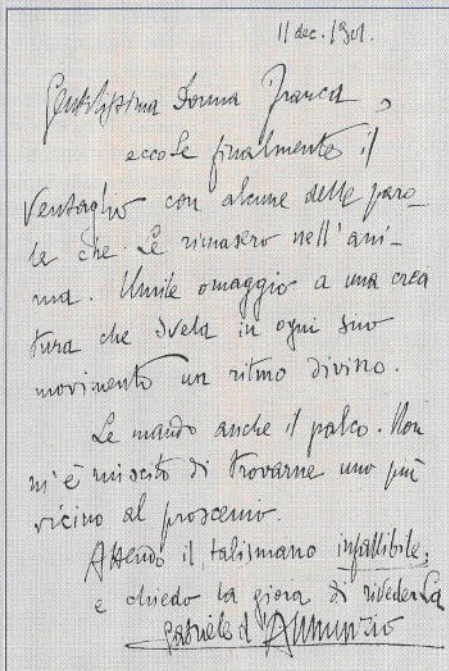 11 dec. 1901.
Gentilissima Donna Franca,
eccoLe finalmente il
Ventaglio con alcune delle paro-
le che Le rimasero nell'ani-
ma. Umile omaggio a una crea
tura che svela in ogni suo
movimento un ritmo divino.
Le mando anche il palco. Non
m'è riuscito di trovarne uno più
vicino al proscenio.
Attendo il talismano infallibile,
e chiedo la gioia di rivederLa
Gabriele d'Annunzio